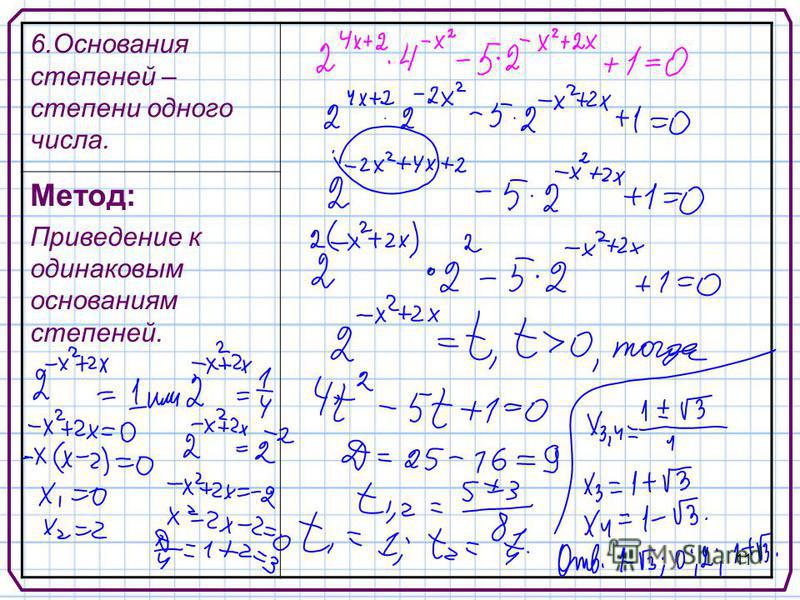 6.Основания
степеней –
степени одного
числа.
Метод:
Приведение к
одинаковым
основаниям
степеней.
2^(4x+2) · 4^(-x²) - 5·2^(-x²+2x) + 1 = 0
2^(4x+2) · 2^(-2x²) - 5·2^(-x²+2x) + 1 = 0
2^(-2x²+4x+2) - 5·2^(-x²+2x) + 1 = 0
2^(2(-x²+2x)) · 2² - 5·2^(-x²+2x) + 1 = 0
2^(-x²+2x) = t, t > 0, тогда
4t² - 5t + 1 = 0
Д = 25 - 16 = 9
t₁,₂ = (5±3)/8
t₁ = 1; t₂ = 1/4
2^(-x²+2x) = 1 или 2^(-x²+2x) = 1/4
-x²+2x=0
-x(x-2)=0
x₁=0
x₂=2
2^(-x²+2x) = 2^(-2)
-x²+2x=-2
x²-2x-2=0
Д/4 = 1+2=3
x₃,₄ = (1±√3)/1
x₃ = 1+√3
x₄ = 1-√3.
Отв. 1-√3; 0; 2; 1+√3.
MyShared